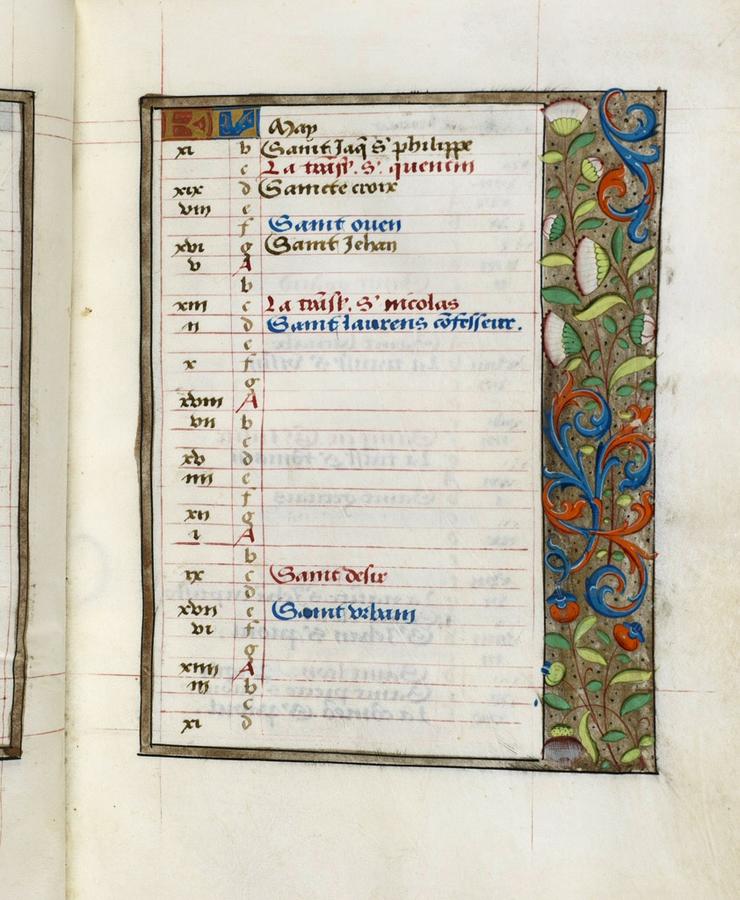 KL May
xi b Saint Jaq̃ S' philippe
c La trãsl. S'. quentin
xix d Saincte croix
viii e
f Saint ouen
xvi g Saint Jehan
v A
b
xiii c La trãsl. S' nicolas
ii d Saint laurens cõfesseur.
e
x f
g
xviii A
vii b
c
xv d
iiii e
f
xii g
i A
b
ix c Saint desir
d
xvii e Saint vrbain
vi f
g
xiiii A
iii b
c
xi d